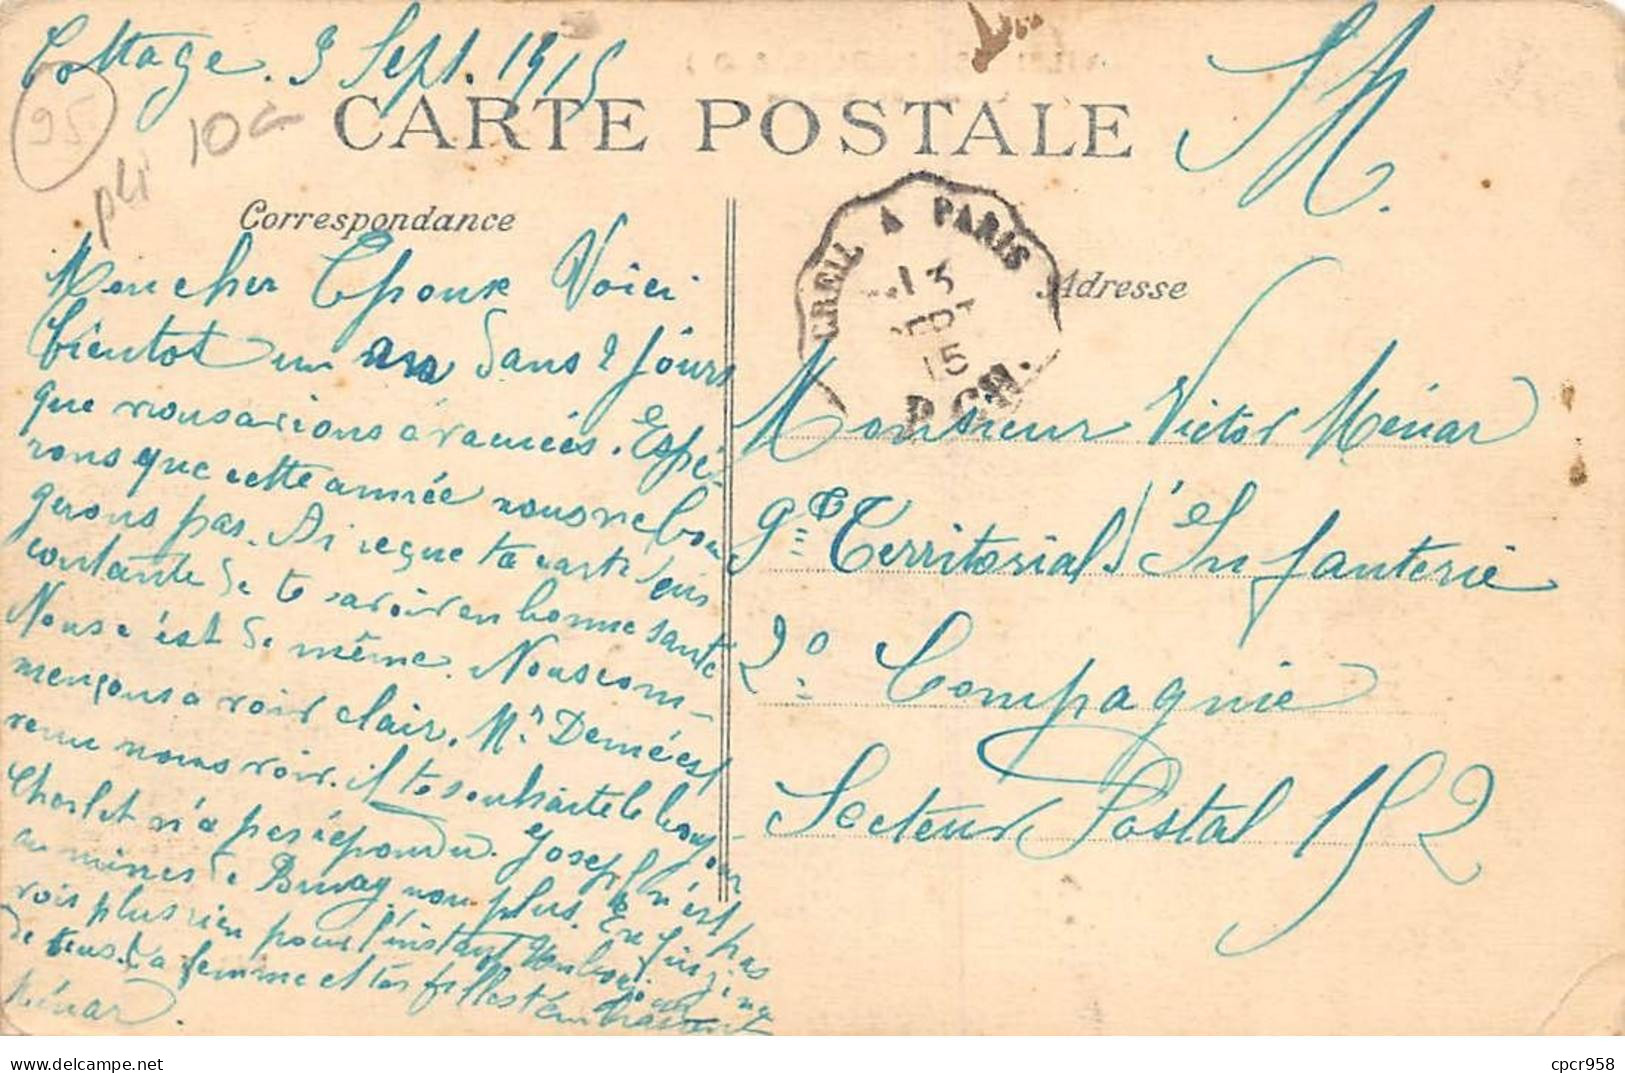 Cottage. 3 Sept. 1915
FM.
95
pli 10c
CARTE POSTALE
Correspondance
Mon cher Epoux Voici
bientot un an dans 2 jours
que nous avions évacuées. Espé-
rons que cette année nous ne bou
gerons pas. Ai reçue ta carte suis
contante de te savoir en bonne santé
Nous c'est de même. Nous com-
mençons a voir clair. Mr Demée est
venu nous voir. il te souhaite le bonjour
Charlet n'a pas répondu. Joseph n'est pas
au mines de Bruay non plus. Enfin je ne
vois plus rien pour l'instant Un bonjour
de tous. Ta femme et tes filles t'embrassant
Ménar.
CREIL A PARIS
13
SEPT
15
Adresse
Monsieur Victor Ménar
9e Territorial d'Infanterie
2e Compagnie
Secteur Postal 152
cpcr958